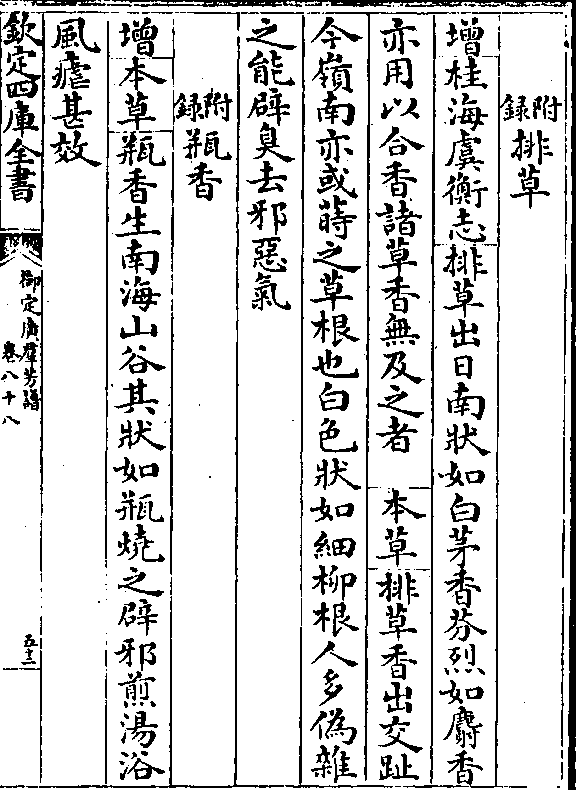 附録排草
增桂海虞衡志排草出日南狀如白茅香芬烈如麝香
亦用以合香諸草香無及之者 本草排草香出交趾
今嶺南亦或蒔之草根也白色狀如細柳根人多僞雜
之能辟臭去邪惡氣
附録瓶香
增本草瓶香生南海山谷其狀如瓶燒之辟邪煎湯浴
風瘧甚效
欽定四庫全書
御定廣羣芳譜
卷八十八